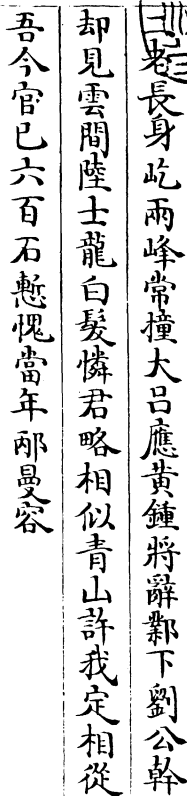 老長身屹兩峰常撞大呂應黄鍾將辭鄴下劉公幹
却見雲間陸士龍白髮憐君略相似青山許我定相從
吾今官已六百石慙愧當年邴曼容